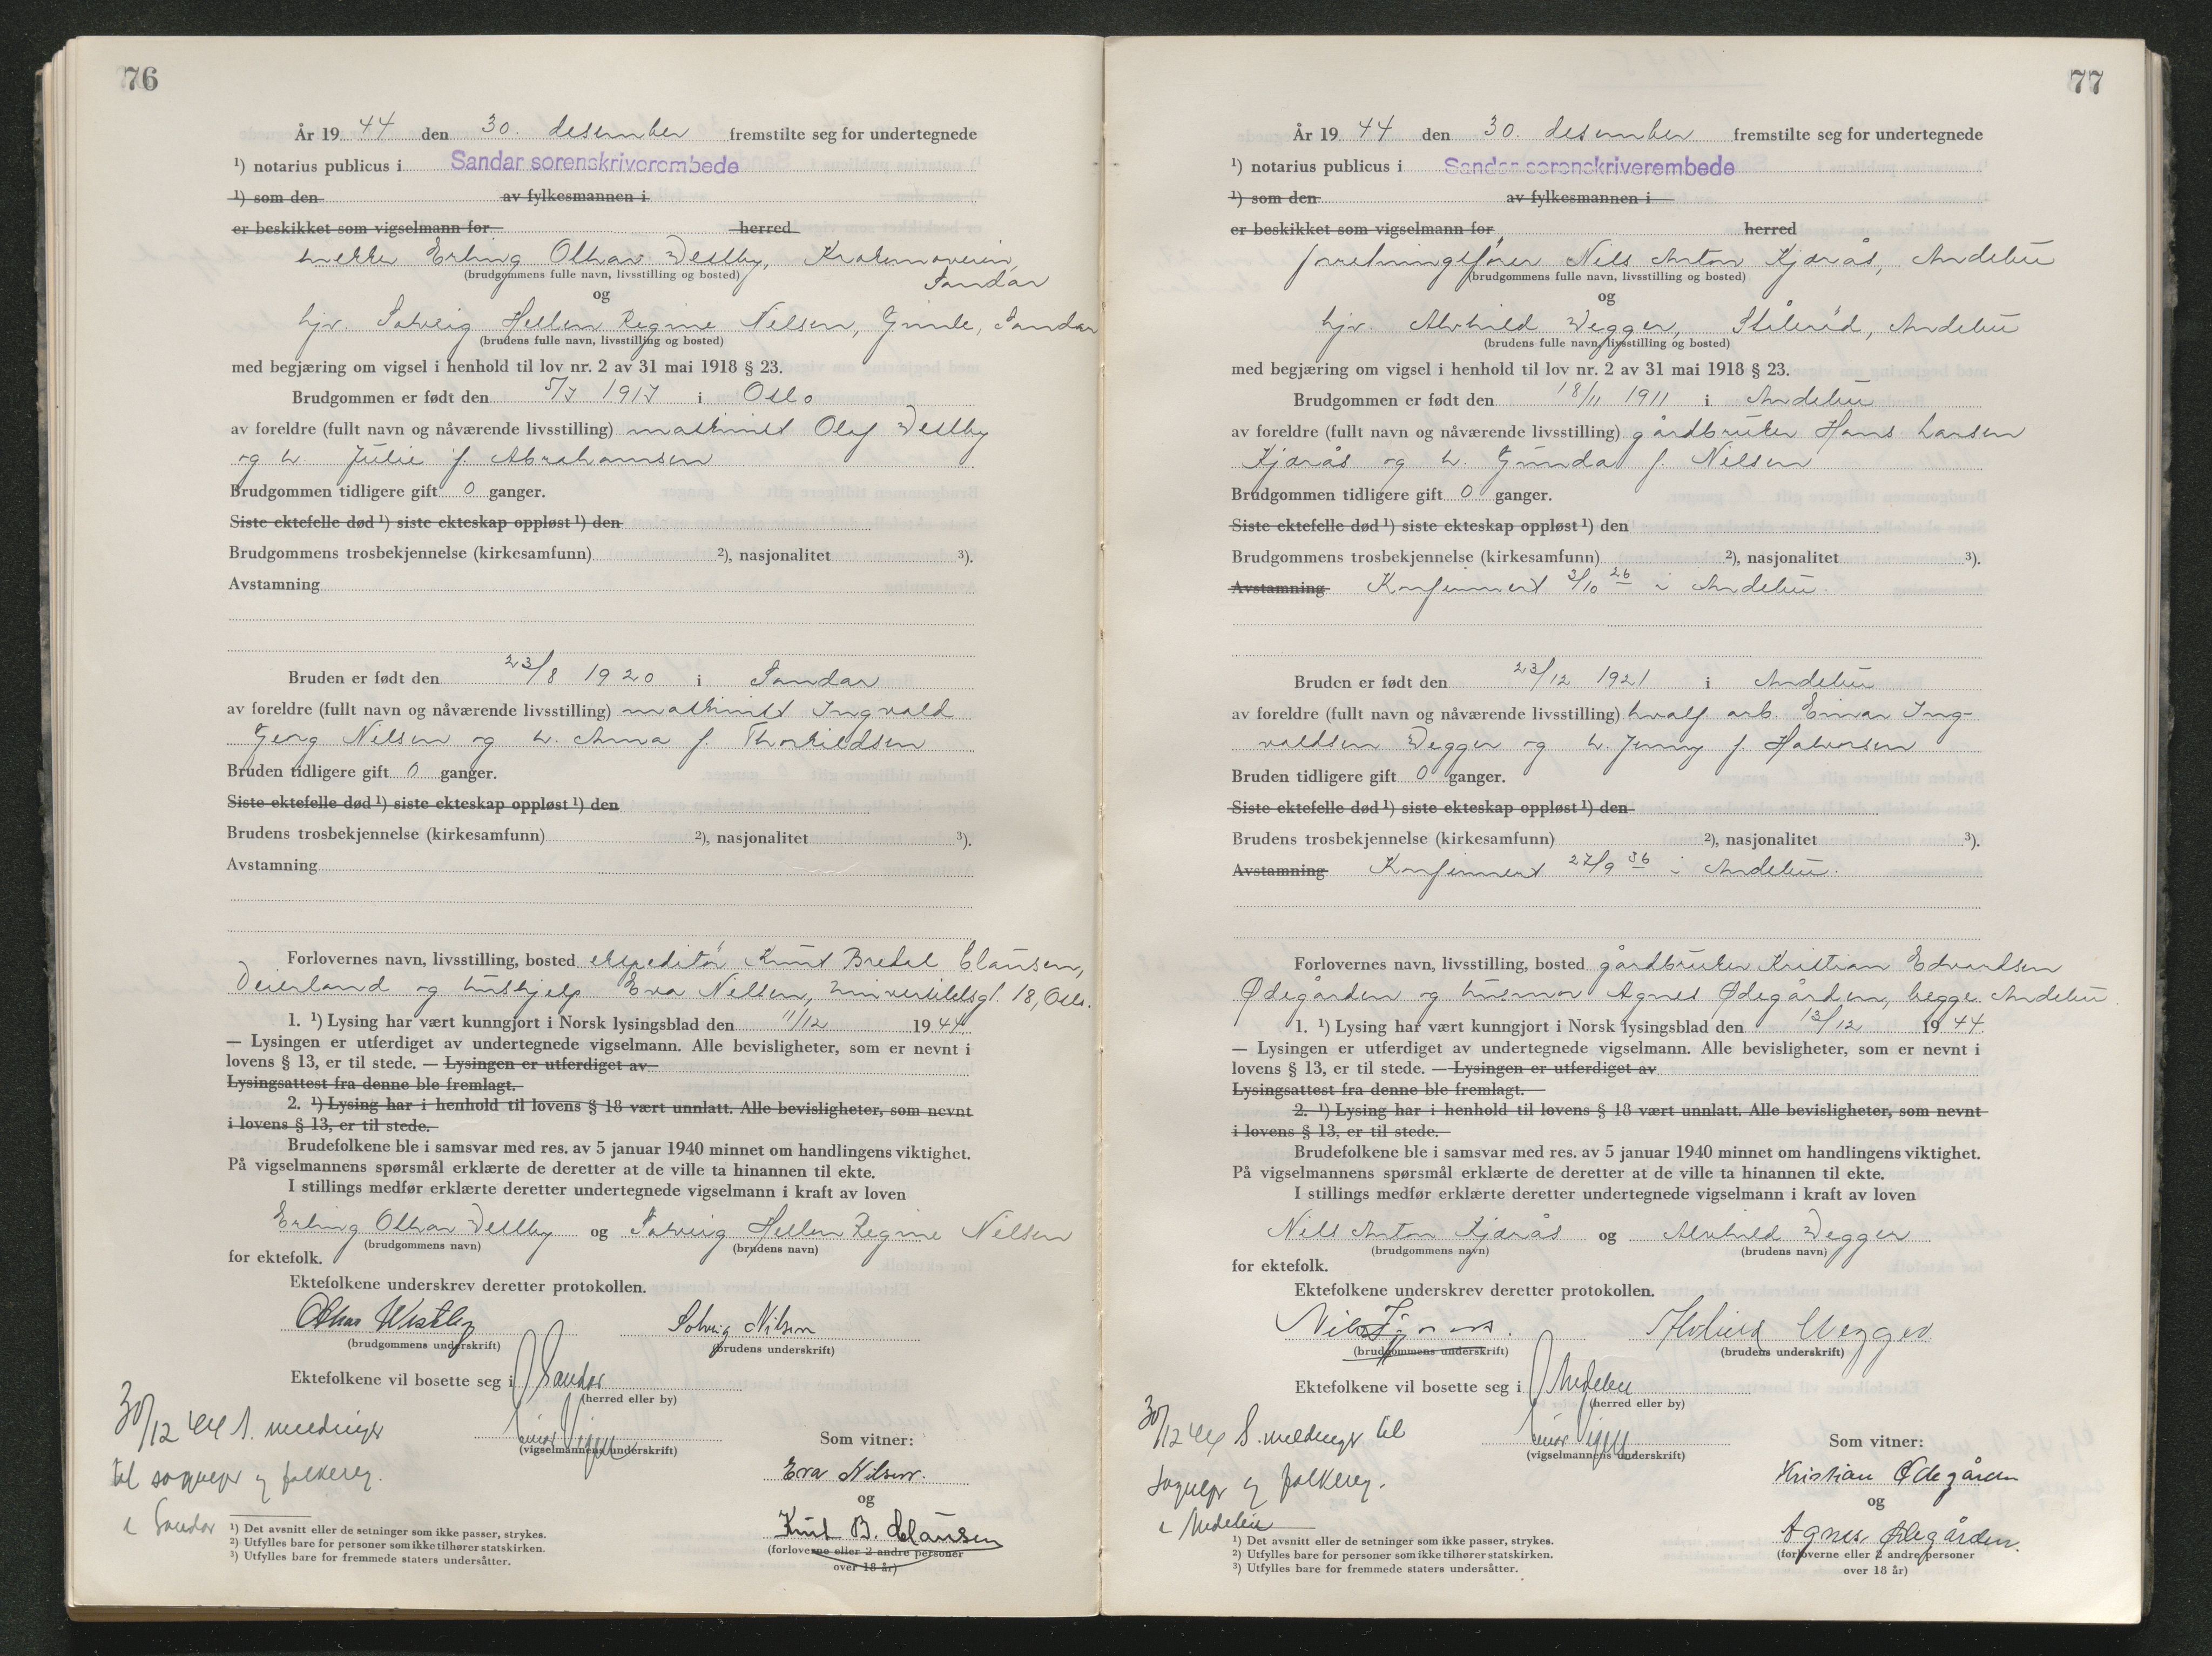 76
År 19 44 den 30. desember fremstilte seg for undertegnede
¹) notarius publicus i Sandar sorenskriverembede
¹) som den av fylkesmannen i
er beskikket som vigselmann for herred
Erling Othar Vestby,
(brudgommens fulle navn, livsstilling og bosted)
Sandar
og
hjv. Solveig Hellen Regine Nilsen, Gimle, Sandar
(brudens fulle navn, livsstilling og bosted)
med begjæring om vigsel i henhold til lov nr. 2 av 31 mai 1918 § 23.
Brudgommen er født den 5/7 1917 i Oslo
av foreldre (fullt navn og nåværende livsstilling) maskinist Olaf Vestby
og h. Julie f. Abrahamsen
Brudgommen tidligere gift 0 ganger.
Siste ektefelle død ¹) siste ekteskap oppløst ¹) den
Brudgommens trosbekjennelse (kirkesamfunn) ²), nasjonalitet ³).
Avstamning
Bruden er født den 23/8 1920 i Sandar
av foreldre (fullt navn og nåværende livsstilling) maskinist Ingvald
Georg Nilsen og h. Anna f. Thorkildsen
Bruden tidligere gift 0 ganger.
Siste ektefelle død ¹) siste ekteskap oppløst ¹) den
Brudens trosbekjennelse (kirkesamfunn) ²), nasjonalitet ³).
Avstamning
Forlovernes navn, livsstilling, bosted ekspeditør Knut Bredal Clausen,
Veierland og hushjelp Eva Nilsen, Universitetsgt. 18, Oslo.
1. ¹) Lysing har vært kunngjort i Norsk lysingsblad den 11/12 1944
— Lysingen er utferdiget av undertegnede vigselmann. Alle bevisligheter, som er nevnt i
lovens § 13, er til stede. — Lysingen er utferdiget av
Lysingsattest fra denne ble fremlagt.
2. ¹) Lysing har i henhold til lovens § 18 vært unnlatt. Alle bevisligheter, som nevnt
i lovens § 13, er til stede.
Brudefolkene ble i samsvar med res. av 5 januar 1940 minnet om handlingens viktighet.
På vigselmannens spørsmål erklærte de deretter at de ville ta hinannen til ekte.
I stillings medfør erklærte deretter undertegnede vigselmann i kraft av loven
Erling Othar Vestby og Solveig Hellen Regine Nilsen
(brudgommens navn) (brudens navn)
for ektefolk.
Ektefolkene underskrev deretter protokollen.
Othar Westby Solveig Nilsen
(brudgommens underskrift) (brudens underskrift)
Ektefolkene vil bosette seg i Sandar
(herred eller by)
30/12 44 S. meldinger
(vigselmannens underskrift) Som vitner:
til sognepr og folkereg. Eva Nilsen.
og
i Sandar
Knut B. Clausen
(forloverne eller 2 andre personer
over 18 år)
¹) Det avsnitt eller de setninger som ikke passer, strykes.
²) Utfylles bare for personer som ikke tilhører statskirken.
³) Utfylles bare for fremmede staters undersåtter.
77
År 19 44 den 30. desember fremstilte seg for undertegnede
¹) notarius publicus i Sandar sorenskriverembede
¹) som den av fylkesmannen i
er beskikket som vigselmann for herred
forretningsfører Nils Anton Kjærås, Andebu
(brudgommens fulle navn, livsstilling og bosted)
og
hjv. Alvhild Vegger, Andebu
(brudens fulle navn, livsstilling og bosted)
med begjæring om vigsel i henhold til lov nr. 2 av 31 mai 1918 § 23.
Brudgommen er født den 18/11 1911 i Andebu
av foreldre (fullt navn og nåværende livsstilling) gårdbruker Hans Larsen
Kjærås og h. Gunda f. Nilsen
Brudgommen tidligere gift 0 ganger.
Siste ektefelle død ¹) siste ekteskap oppløst ¹) den
Brudgommens trosbekjennelse (kirkesamfunn) ²), nasjonalitet ³).
Avstamning Konfirmert 3/10 26 i Andebu.
Bruden er født den 23/12 1921 i Andebu
av foreldre (fullt navn og nåværende livsstilling) hvalf. arb. Einar Ing-
valdsen Vegger og h. Jenny f. Halvorsen
Bruden tidligere gift 0 ganger.
Siste ektefelle død ¹) siste ekteskap oppløst ¹) den
Brudens trosbekjennelse (kirkesamfunn) ²), nasjonalitet ³).
Avstamning Konfirmert 27/9 36 i Andebu.
Forlovernes navn, livsstilling, bosted gårdbruker Kristian Edvardsen
Ødegården og husmor Agnes Ødegården, begge Andebu.
1. ¹) Lysing har vært kunngjort i Norsk lysingsblad den 13/12 1944
— Lysingen er utferdiget av undertegnede vigselmann. Alle bevisligheter, som er nevnt i
lovens § 13, er til stede. — Lysingen er utferdiget av
Lysingsattest fra denne ble fremlagt.
2. ¹) Lysing har i henhold til lovens § 18 vært unnlatt. Alle bevisligheter, som nevnt
i lovens § 13, er til stede.
Brudefolkene ble i samsvar med res. av 5 januar 1940 minnet om handlingens viktighet.
På vigselmannens spørsmål erklærte de deretter at de ville ta hinannen til ekte.
I stillings medfør erklærte deretter undertegnede vigselmann i kraft av loven
Nils Anton Kjærås og Alvhild Vegger
(brudgommens navn) (brudens navn)
for ektefolk.
Ektefolkene underskrev deretter protokollen.
Nils Kjærås. Alvhild Vegger
(brudgommens underskrift) (brudens underskrift)
Ektefolkene vil bosette seg i Andebu
(herred eller by)
30/12 44 S. meldinger til
(vigselmannens underskrift) Som vitner:
sognepr og folkereg. Kristian Ødegården
og
i Andebu
Agnes Ødegården.
(forloverne eller 2 andre personer
over 18 år)
¹) Det avsnitt eller de setninger som ikke passer, strykes.
²) Utfylles bare for personer som ikke tilhører statskirken.
³) Utfylles bare for fremmede staters undersåtter.